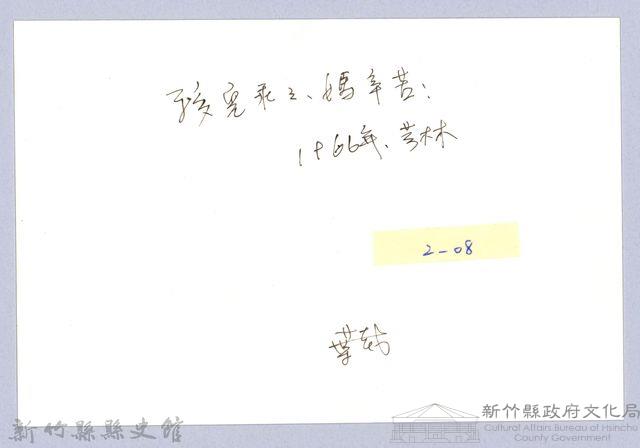 孩兒乖乖、媽辛苦:
1966年、芎林
2-08
葉裁
新竹縣縣史館
新竹縣政府文化局
Cultural Affairs Bureau of Hsinchu
County Government